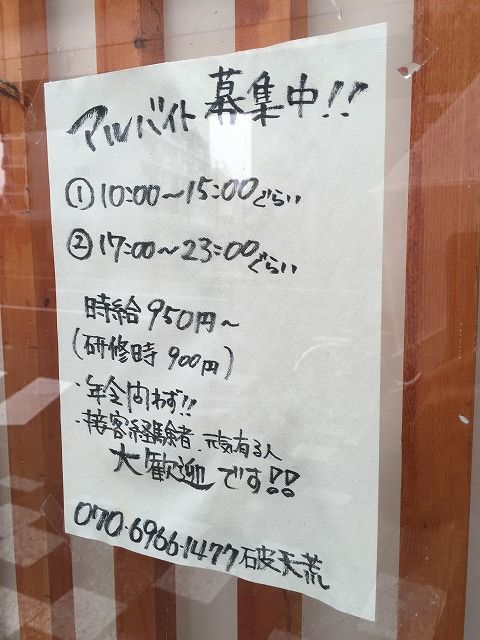 アルバイト募集中!!
① 10:00~15:00ぐらい
② 17:00~23:00ぐらい
時給950円~
(研修時900円)
・年令問わず!!
・接客経験者、元気有る人
大歓迎です!!
070-6966-1477 破天荒